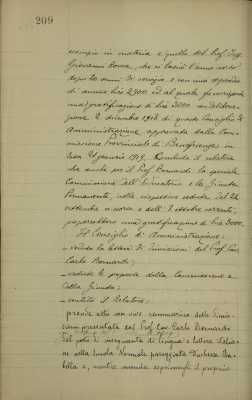 209
esempio in materia è quello del Prof. Ing.
Giovanni Rovea, che si lasciò l'anno scorso
dopo 20 anni di servizio e con uno stipendio
di annue lire 2900 ed al quale fu corrisposta
una gratificazione di lire 3000 con delibera-
zione 2 dicembre 1918 di questo Consiglio di
Amministrazione, approvata dalla Com-
missione Provinciale di Beneficenza in
data 21 gennaio 1919. Conclude il relatore
che anche per il Prof. Bernardi la speciale
Commissione dell'Educatorio e la Giunta
Permanente, nelle rispettive sedute del 26
settembre u. scorso e dell'8 ottobre corrente,
proporrebbero una gratificazione di lire 3000.
Il Consiglio di Amministrazione:
- veduta la lettera di dimissioni del Prof. Cav.
Carlo Bernardi;
- vedute le proposte della Commissione e
della Giunta;
- sentito il Relatore;
prende atto con vivo rammarico delle dimis-
sioni presentate dal Prof. Cav. Carlo Bernardi
dal posto di insegnante di lingua e lettere italia-
ne alla Scuola Normale pareggiata Duchessa Isa-
bella e, mentre manda esprimergli il proprio